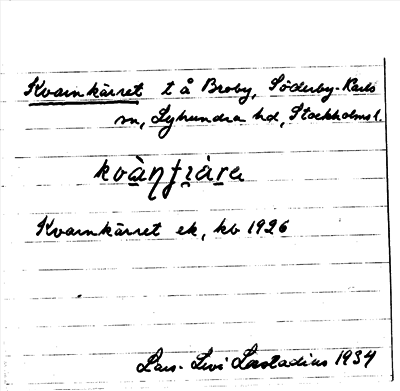 Kvarnkärret t å Broby, Söderby-Karls
sn, Lyhundra hd, Stockholms l.
Kvarnkärret ek, kb 1926
Lars-Levi Læstadius 1934